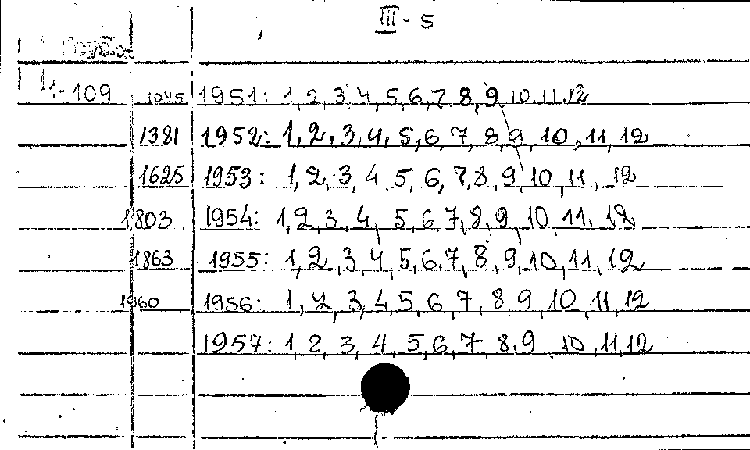 III-5
1-109 1045 1951: 1, 2, 3, 4, 5, 6, 7, 8, 9, 10, 11, 12
1381 1952: 1, 2, 3, 4, 5, 6, 7, 8, 9, 10, 11, 12
1625 1953: 1, 2, 3, 4, 5, 6, 7, 8, 9, 10, 11, 12
1803 1954: 1, 2, 3, 4, 5, 6, 7, 8, 9, 10, 11, 12
1863 1955: 1, 2, 3, 4, 5, 6, 7, 8, 9, 10, 11, 12
1960 1956: 1, 2, 3, 4, 5, 6, 7, 8, 9, 10, 11, 12
1957: 1, 2, 3, 4, 5, 6, 7, 8, 9, 10, 11, 12